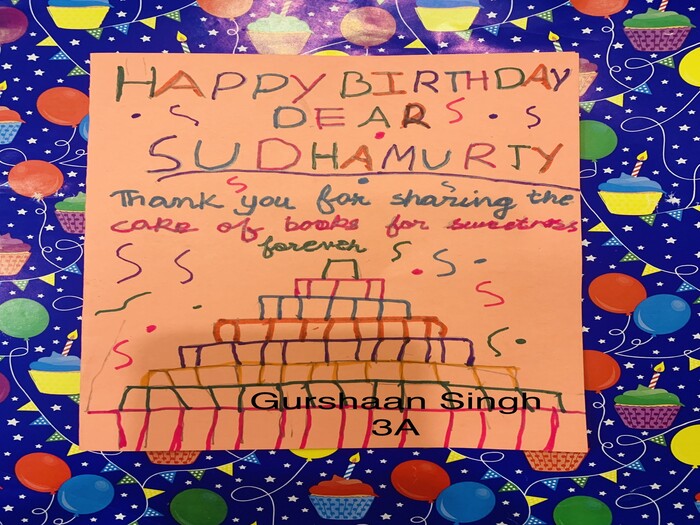 HAPPY BIRTHDAY
DEAR
SUDHAMURTY
Thank you for sharing the
cake of books for sweetness
forever
Gurshaan Singh
3A